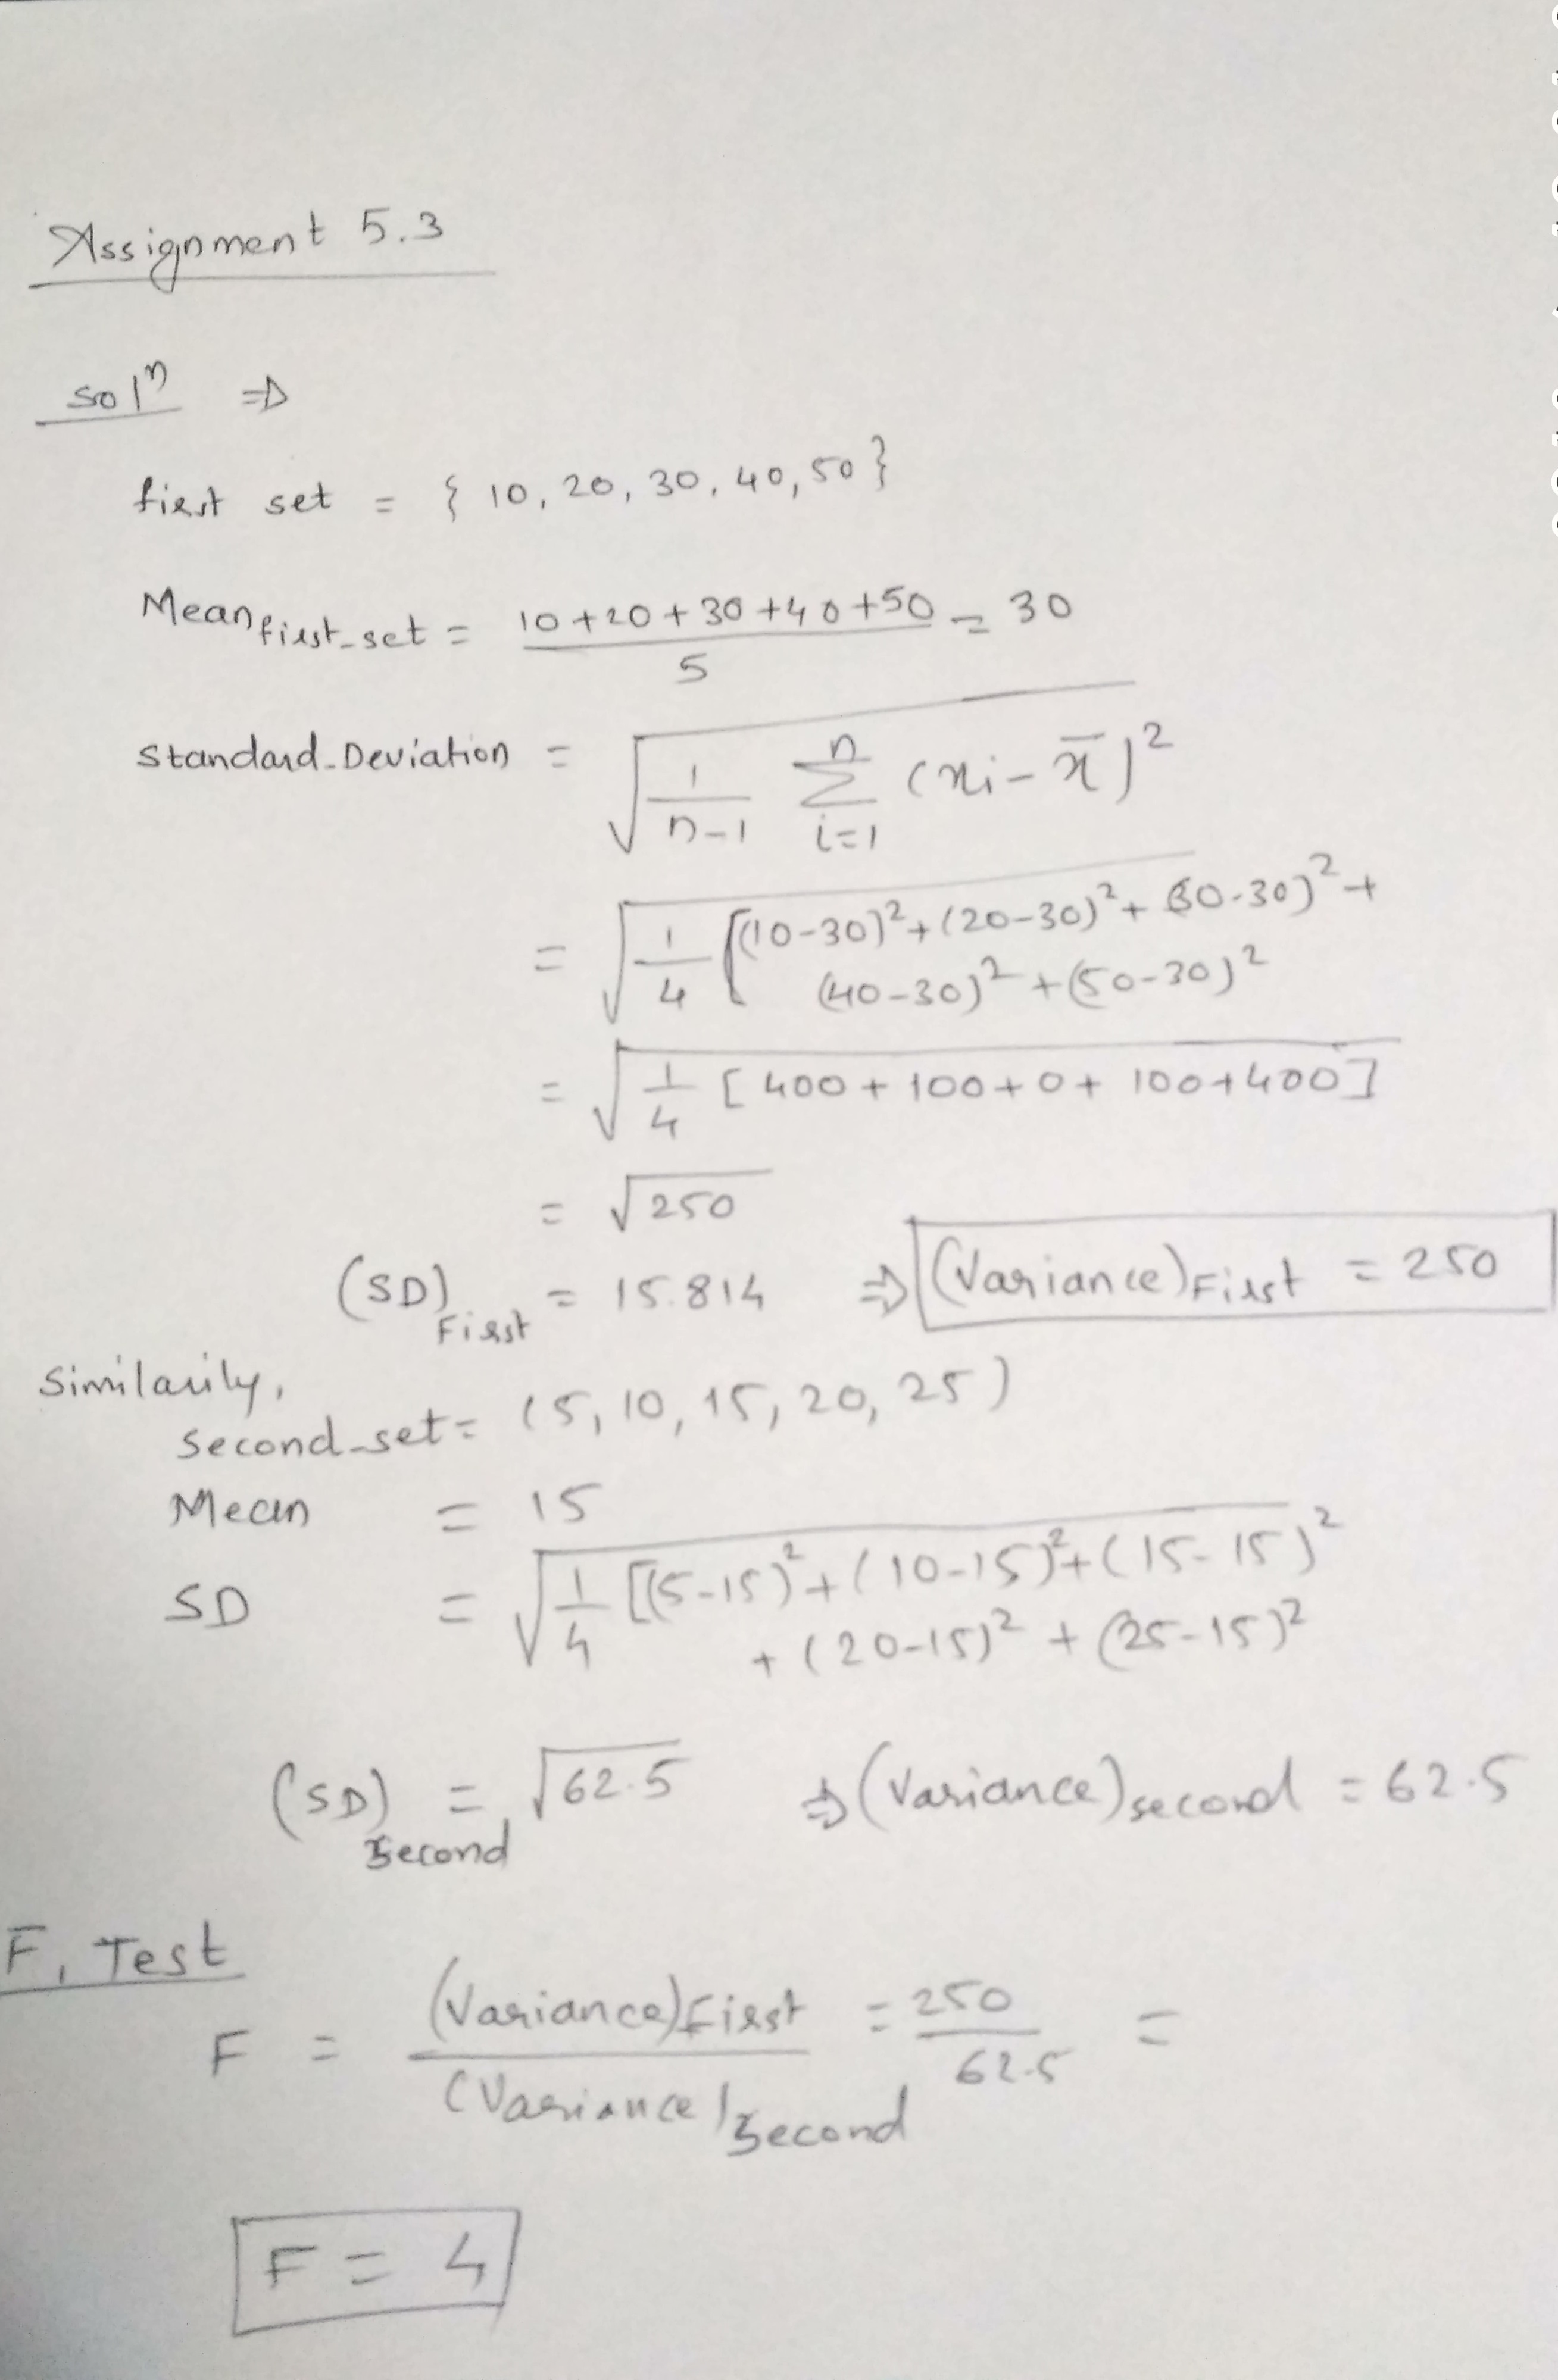 Assignment 5.3
solⁿ ⇒
first set = { 10, 20, 30, 40, 50 }
Mean first_set = (10+20+30+40+50)/5 = 30
Standard_Deviation = √(1/(n-1) Σ_{i=1}^{n} (xi - x̄)²
= √(1/4 [(10-30)² + (20-30)² + (30-30)² +
(40-30)² + (50-30)²
= √(1/4 [400 + 100 + 0 + 100 + 400]
= √250
(SD) First = 15.814 ⇒ (Variance) First = 250
Similarily,
Second_set = (5, 10, 15, 20, 25)
Mean = 15
SD = √(1/4 [(5-15)² + (10-15)² + (15-15)²
+ (20-15)² + (25-15)²
(SD) Second = √62.5 ⇒ (Variance) second = 62.5
F, Test
F = (Variance) First / (Variance) Second = 250/62.5 =
F = 4